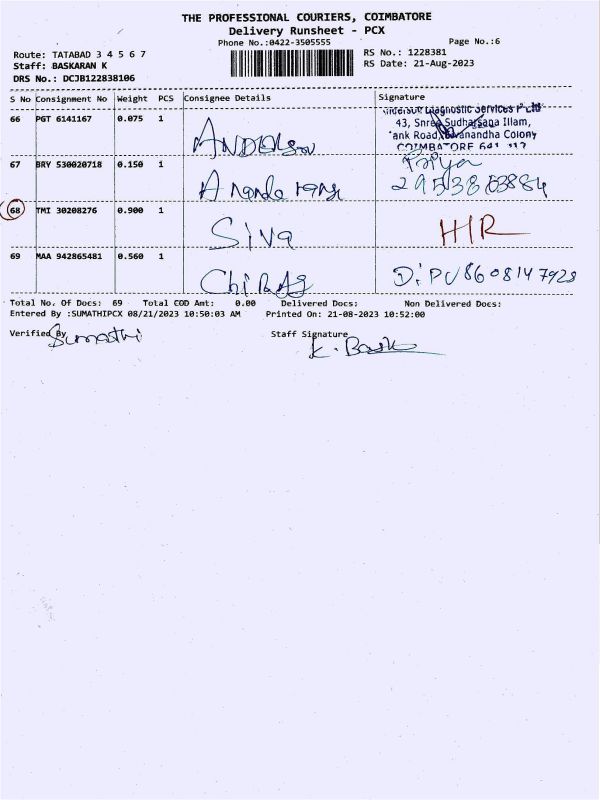 THE PROFESSIONAL COURIERS, COIMBATORE
Delivery Runsheet - PCX
Phone No.:0422-3505555
Page No.:6
Route: TATABAD 3 4 5 6 7
RS No.: 1228381
Staff: BASKARAN K
RS Date: 21-Aug-2023
DRS No.: DCJB122838106
S No Consignment No Weight PCS Consignee Details Signature
66 PGT 6141167 0.075 1 ANDERSON
Diagnostic Services P Ltd
43, Shree Sudharsana Illam,
Colony
COIMBATORE
67 BRY 530020718 0.150 1 Priya
68 TMI 30208276 0.900 1 Siva H/R
69 MAA 942865481 0.560 1 CHIRAG 8608147928
Total No. Of Docs: 69 Total COD Amt: 0.00 Delivered Docs: Non Delivered Docs:
Entered By :SUMATHIPCX 08/21/2023 10:50:03 AM Printed On: 21-08-2023 10:52:00
Verified By Sumathi Staff Signature K. Bask